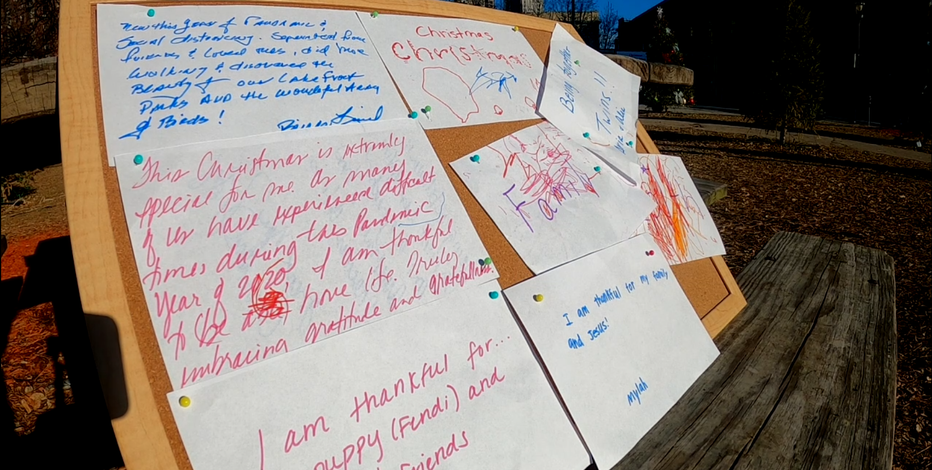 this year of Pandemic &
Social distancing. Separated from
friends & Loved ones, did more
Walking & discovered the
Beauty of our Lake Front
Parks AND the wonderful Array
of Birds!
This Christmas is extremely
special for me as many
of us have experienced difficult
times during this Pandemic
Year of 2020, I am thankful
to be and have life. Truly
embracing gratitude and gratefullness.
I am thankful for...
puppy (Fendi) and
friends
Christmas
Christmas
Being
Twins!!
Family
I am thankful for my family
and Jesus!
Mylah